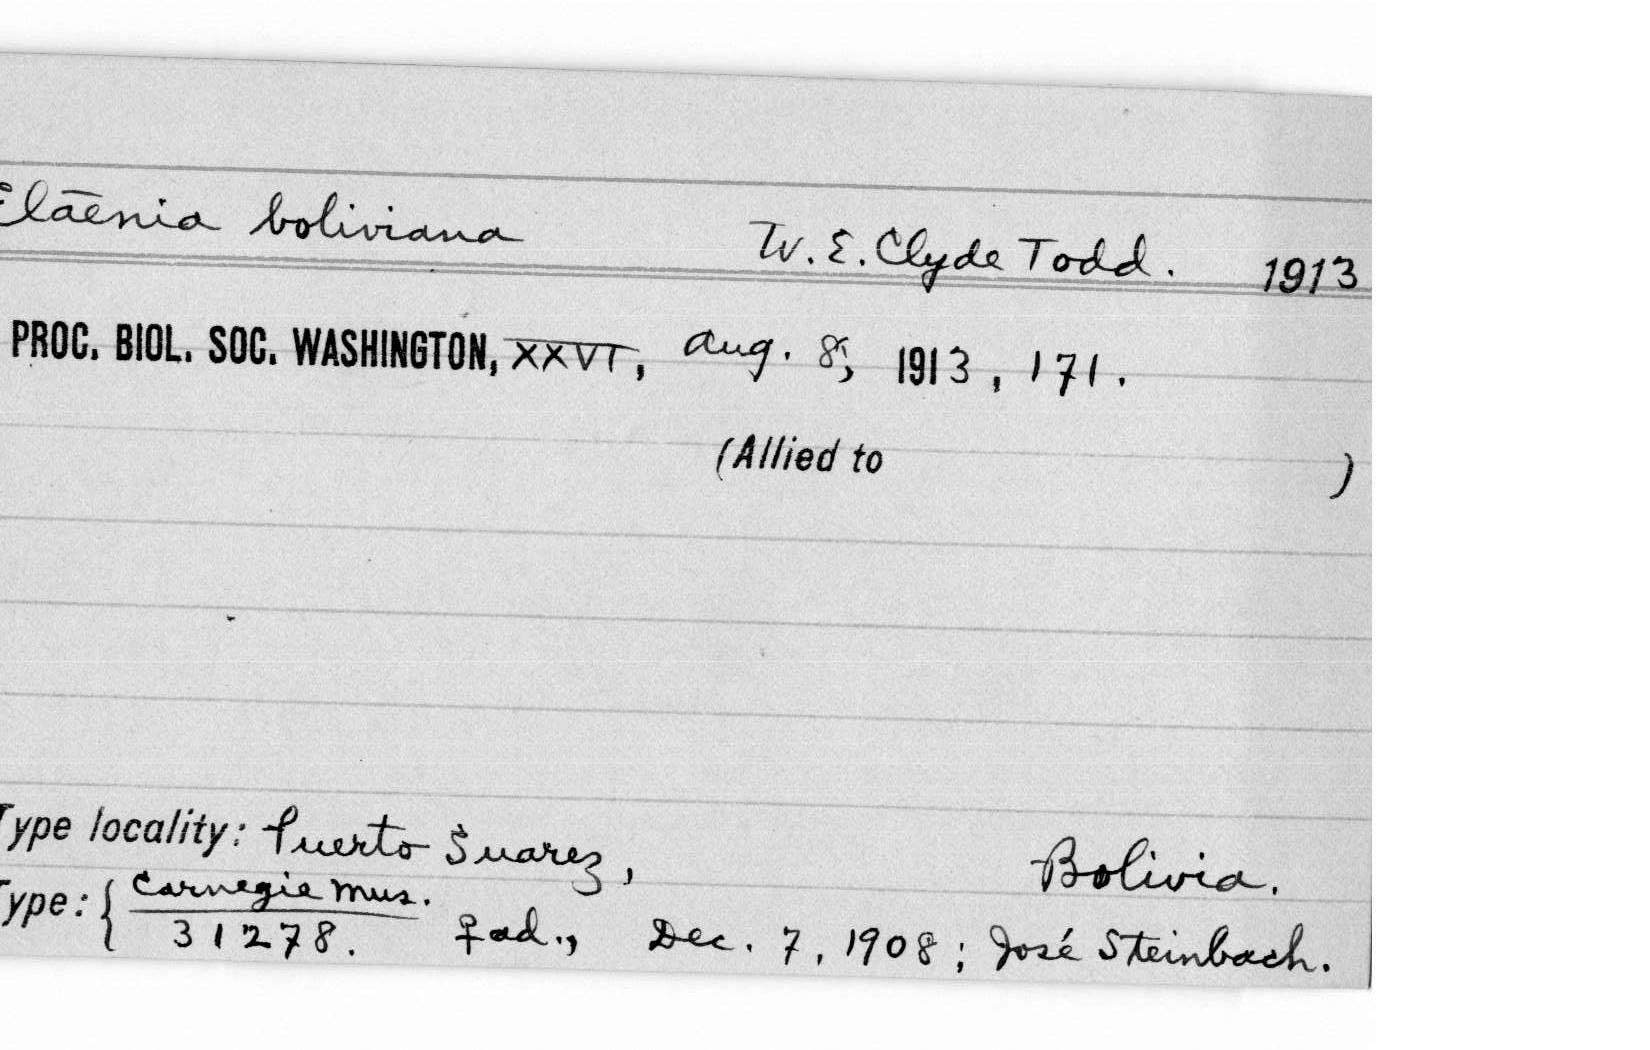 Elaēnia boliviana W. E. Clyde Todd. 1913
PROC. BIOL. SOC. WASHINGTON, XXVI, Aug. 8, 1913, 171.
(Allied to )
Type locality: Puerto Suarez, Bolivia.
Type: { Carnegie Mus.
31278. ♀ ad., Dec. 7, 1908; José Steinbach.